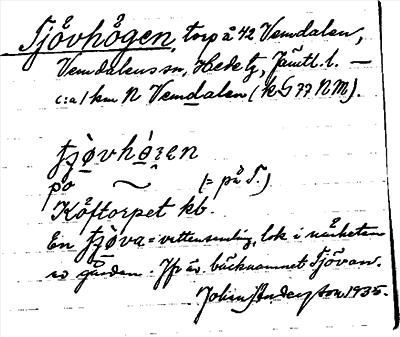 Tjövhögen, torp å 42 Vemdalen,
Vemdalens sn, Hede tg, Jämtl. l. —
c:a 1 km N Vemdalen (kG 77 NM).
tjövhö̀ren
po ~ (= på T.)
Köftorpet kb.
En tjöva = vattensamling, lok i närheten
av gården. Jfr äv. bäcknamnet Tjövan.
John Anderson 1935.